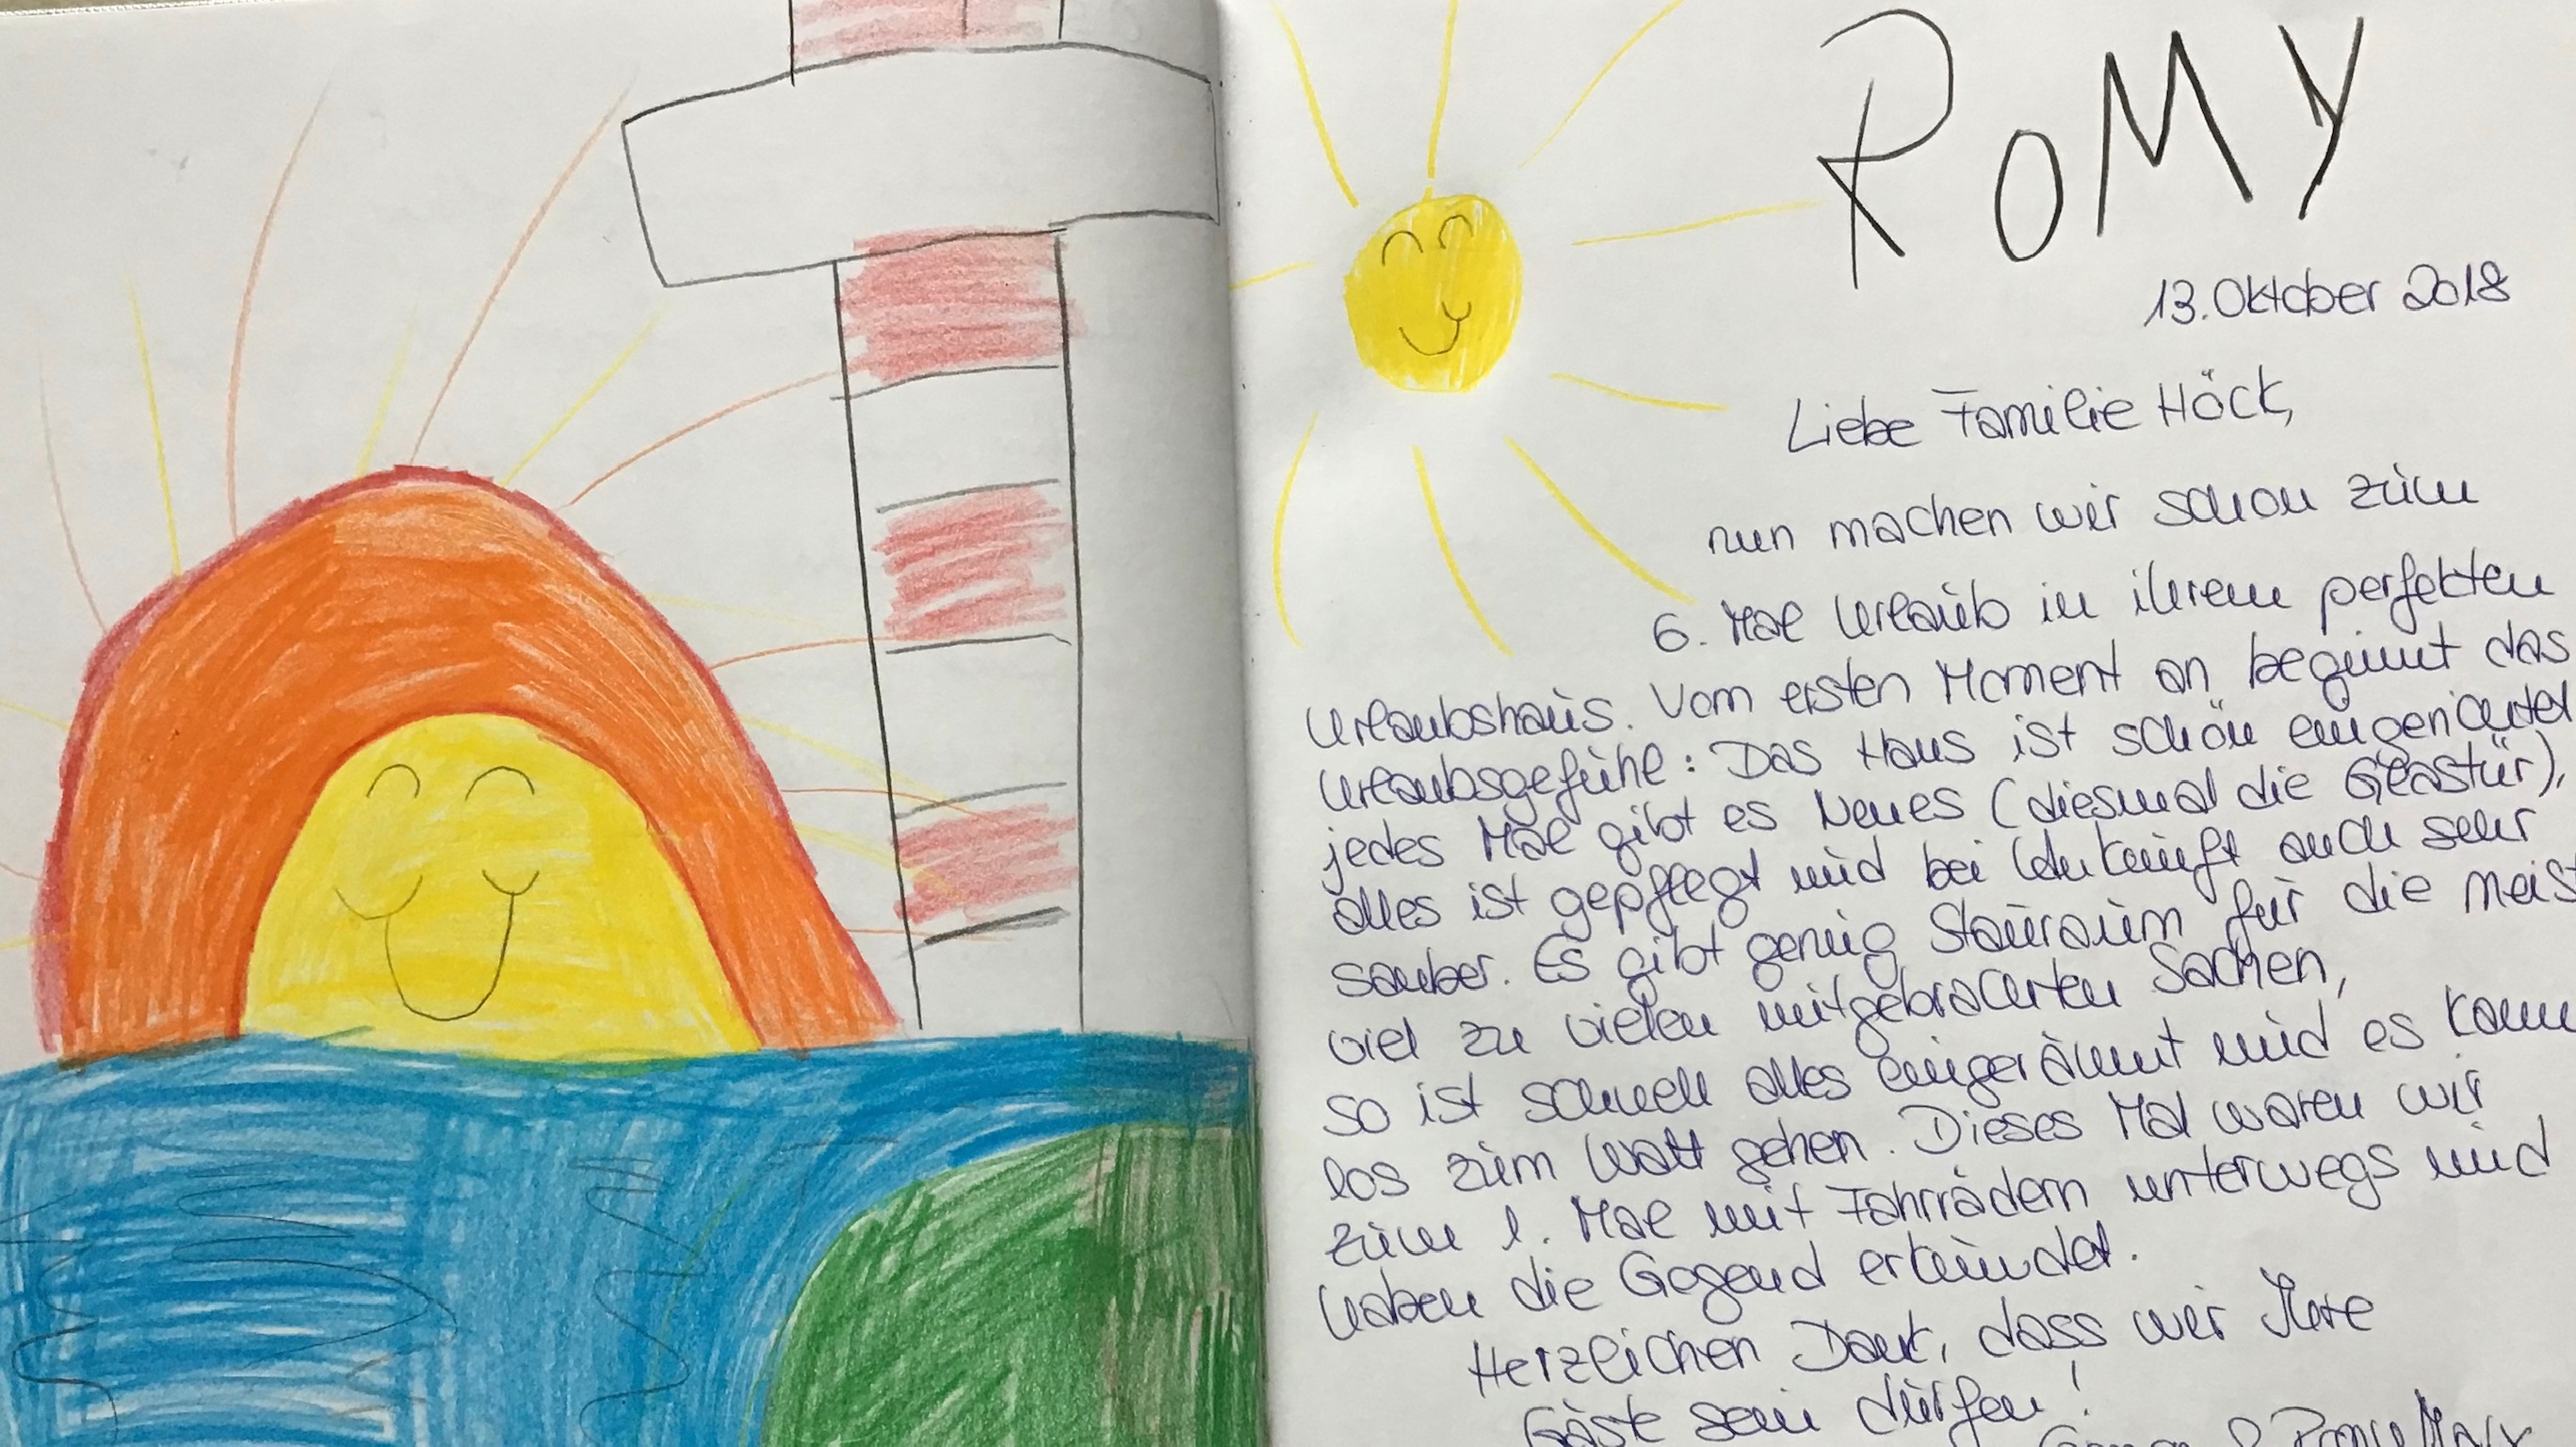 ROMY
13. Oktober 2018
Liebe Familie Höck,
nun machen wir schon zum
6. Mal Urlaub in ihrem perfekten
Urlaubshaus. Vom ersten Moment an beginnt das
Urlaubsgefühl: Das Haus ist schön eingerichtet
jedes Mal gibt es Neues (diesmal die Glastür),
alles ist gepflegt und bei Ankunft auch sehr
sauber. Es gibt genug Stauraum für die meist
viel zu vielen mitgebrachten Sachen,
so ist schnell alles eingeräumt und es kann
los zum Watt gehen. Dieses Mal waren wir
zum 1. Mal mit Fahrrädern unterwegs und
haben die Gegend erkundet.
Herzlichen Dank, dass wir Ihre
Gäste sein dürfen!